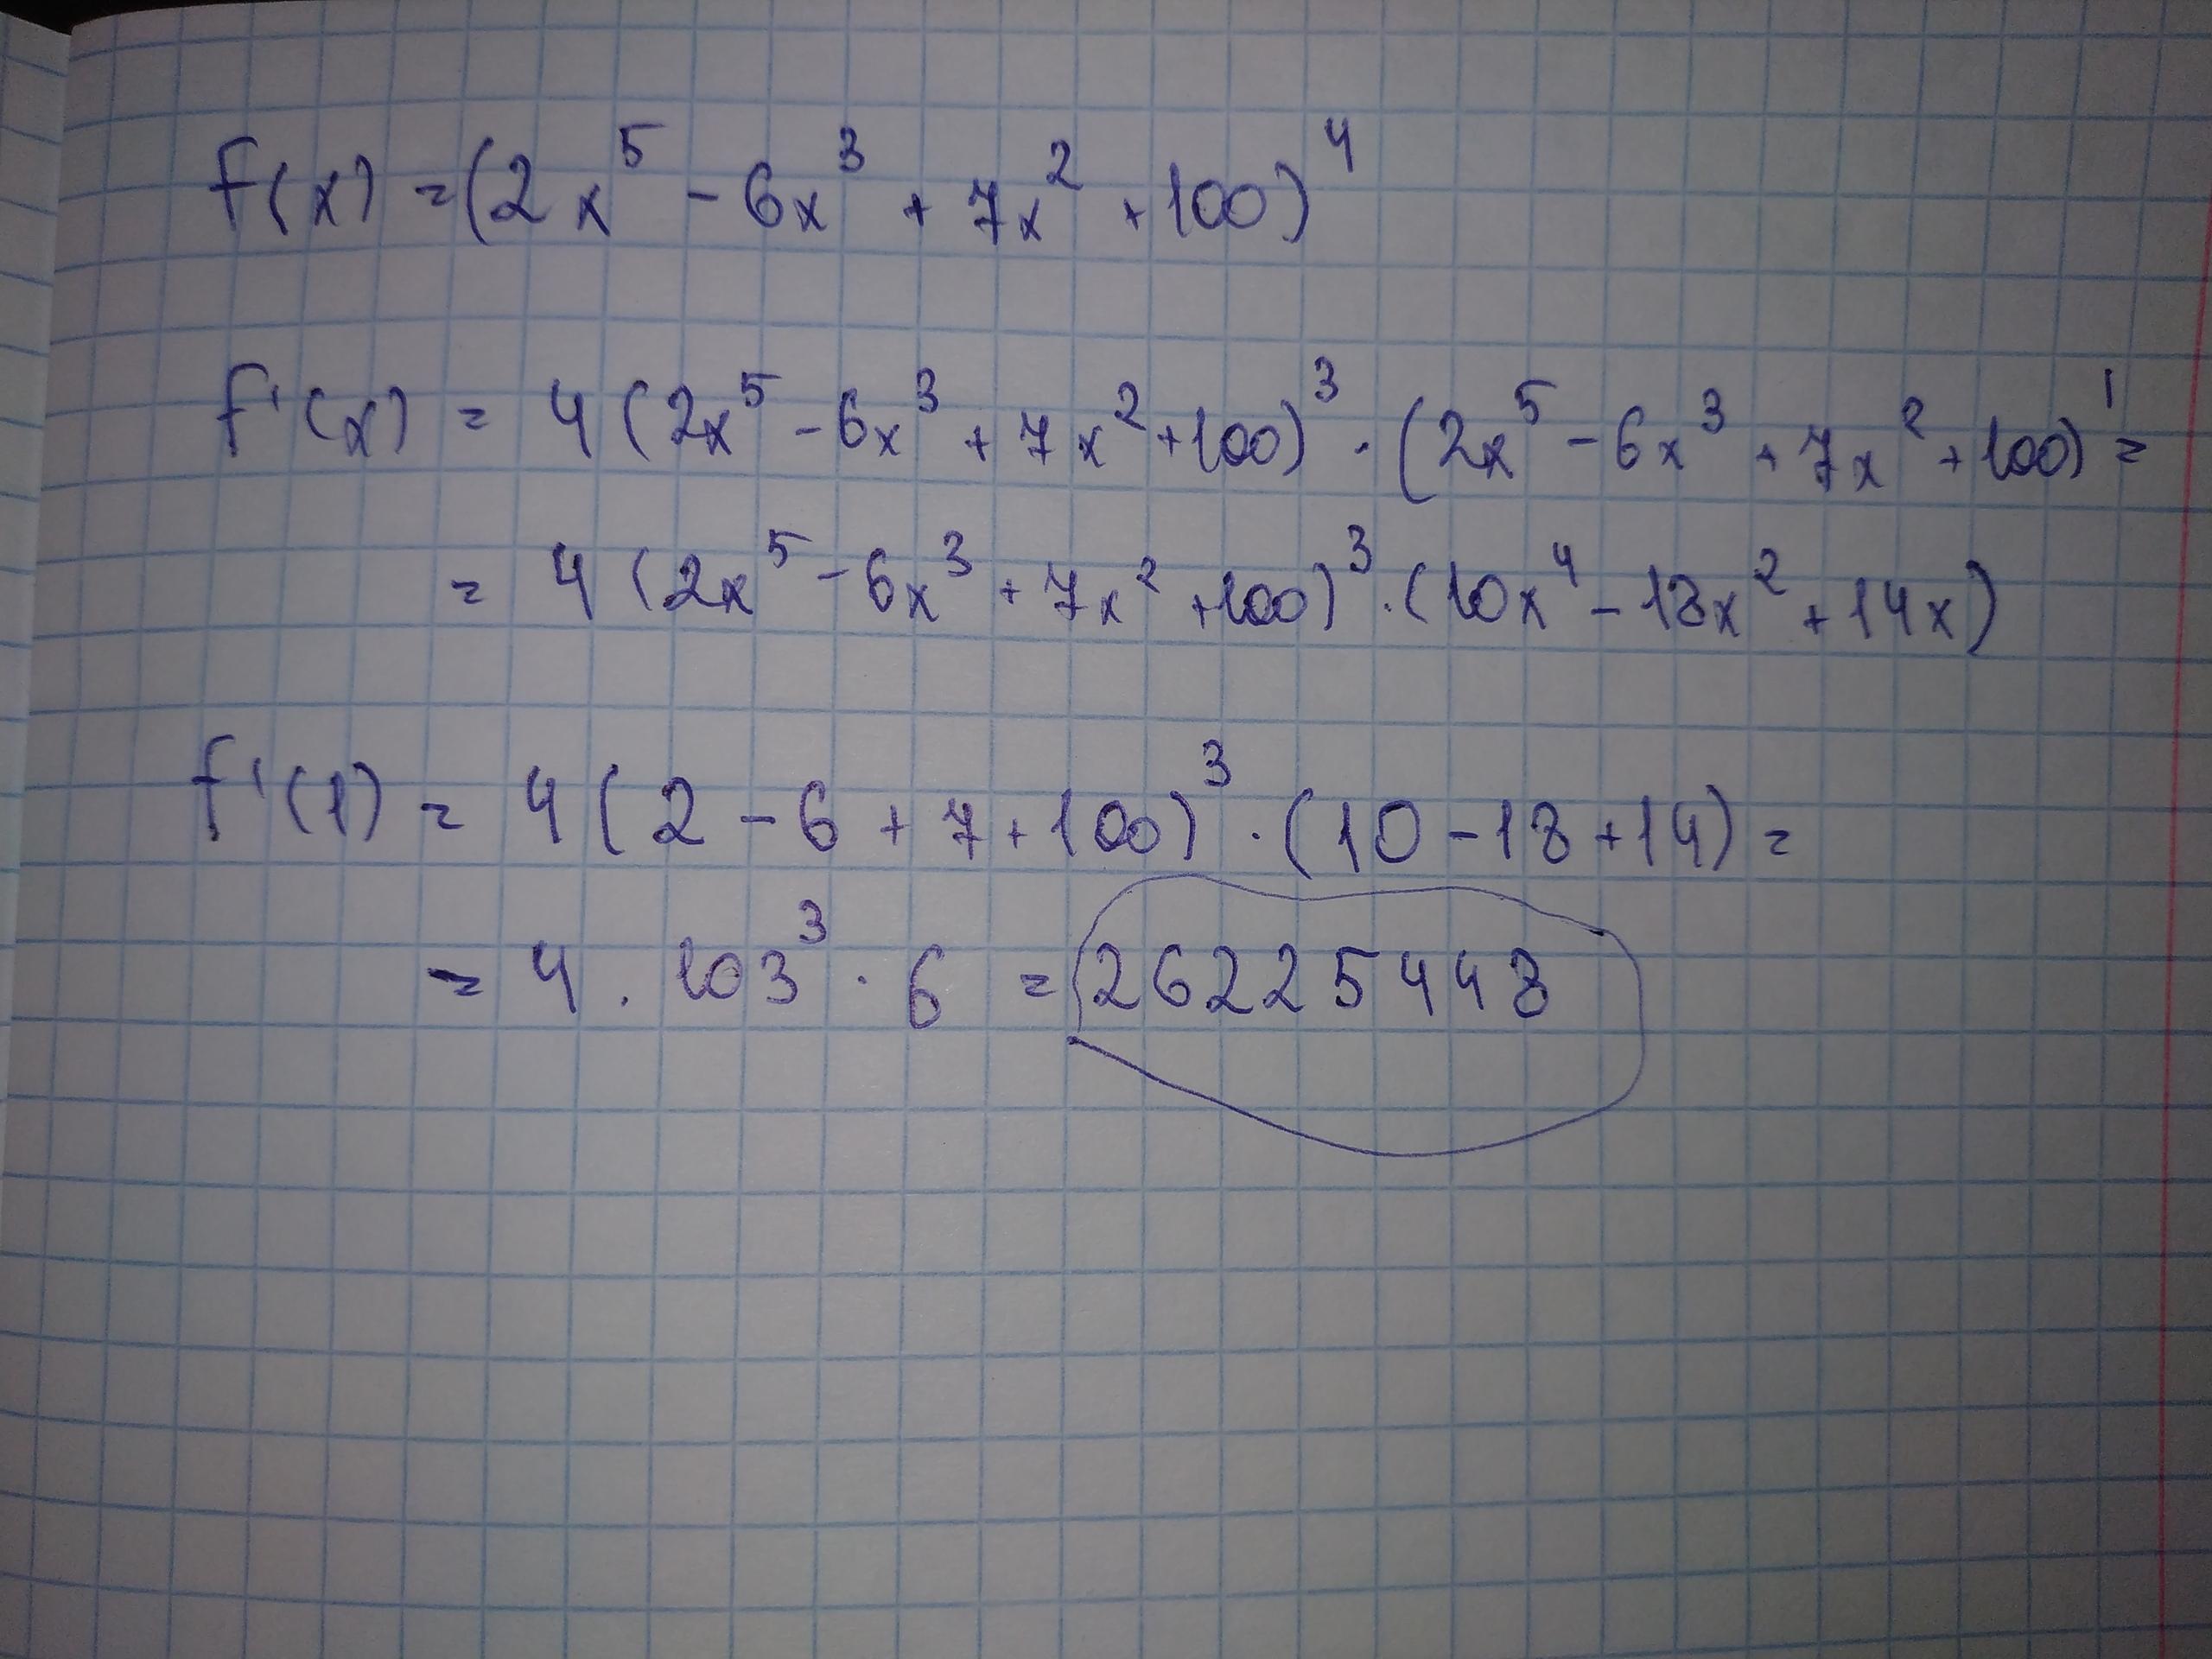 f(x) = (2x⁵ - 6x³ + 7x² + 100)⁴
f'(x) = 4(2x⁵ - 6x³ + 7x² + 100)³ · (2x⁵ - 6x³ + 7x² + 100)' =
= 4(2x⁵ - 6x³ + 7x² + 100)³ · (10x⁴ - 18x² + 14x)
f'(1) = 4(2 - 6 + 7 + 100)³ · (10 - 18 + 14) =
= 4 · 103³ · 6 = 26225448